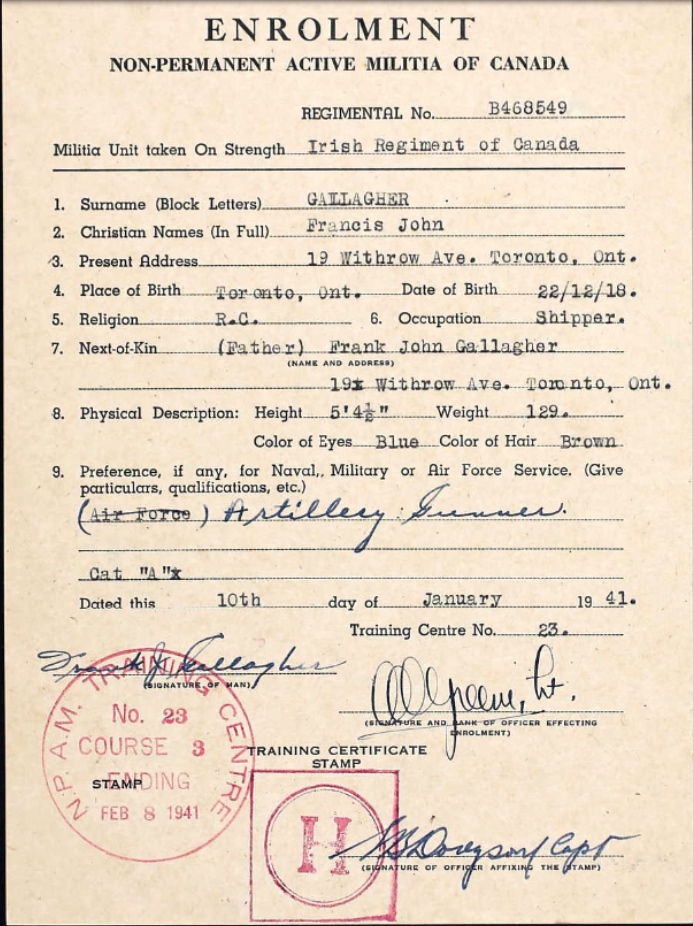 ENROLMENT
NON-PERMANENT ACTIVE MILITIA OF CANADA
REGIMENTAL No. B468549
Militia Unit taken On Strength Irish Regiment of Canada
1. Surname (Block Letters) GALLAGHER
2. Christian Names (In Full) Francis John
3. Present Address 19 Withrow Ave. Toronto, Ont.
4. Place of Birth Toronto, Ont. Date of Birth 22/12/18.
5. Religion R.C. 6. Occupation Shipper.
7. Next-of-Kin (Father) Frank John Gallagher
(NAME AND ADDRESS)
19x Withrow Ave. Toronto, Ont.
8. Physical Description: Height 5'4½" Weight 129.
Color of Eyes Blue Color of Hair Brown
9. Preference, if any, for Naval, Military or Air Force Service. (Give
particulars, qualifications, etc.)
(Air Force) Artillery Gunner.
Cat "A"x
Dated this 10th day of January 19 41.
Training Centre No. 23.
Frank J. Gallagher
(SIGNATURE OF MAN)
Lt.
(SIGNATURE AND RANK OF OFFICER EFFECTING
ENROLMENT)
N.P.A.M. TRAINING CENTRE
No. 23
COURSE 3
ENDING
FEB 8 1941
STAMP
TRAINING CERTIFICATE
STAMP
H
Capt
(SIGNATURE OF OFFICER AFFIXING THE STAMP)